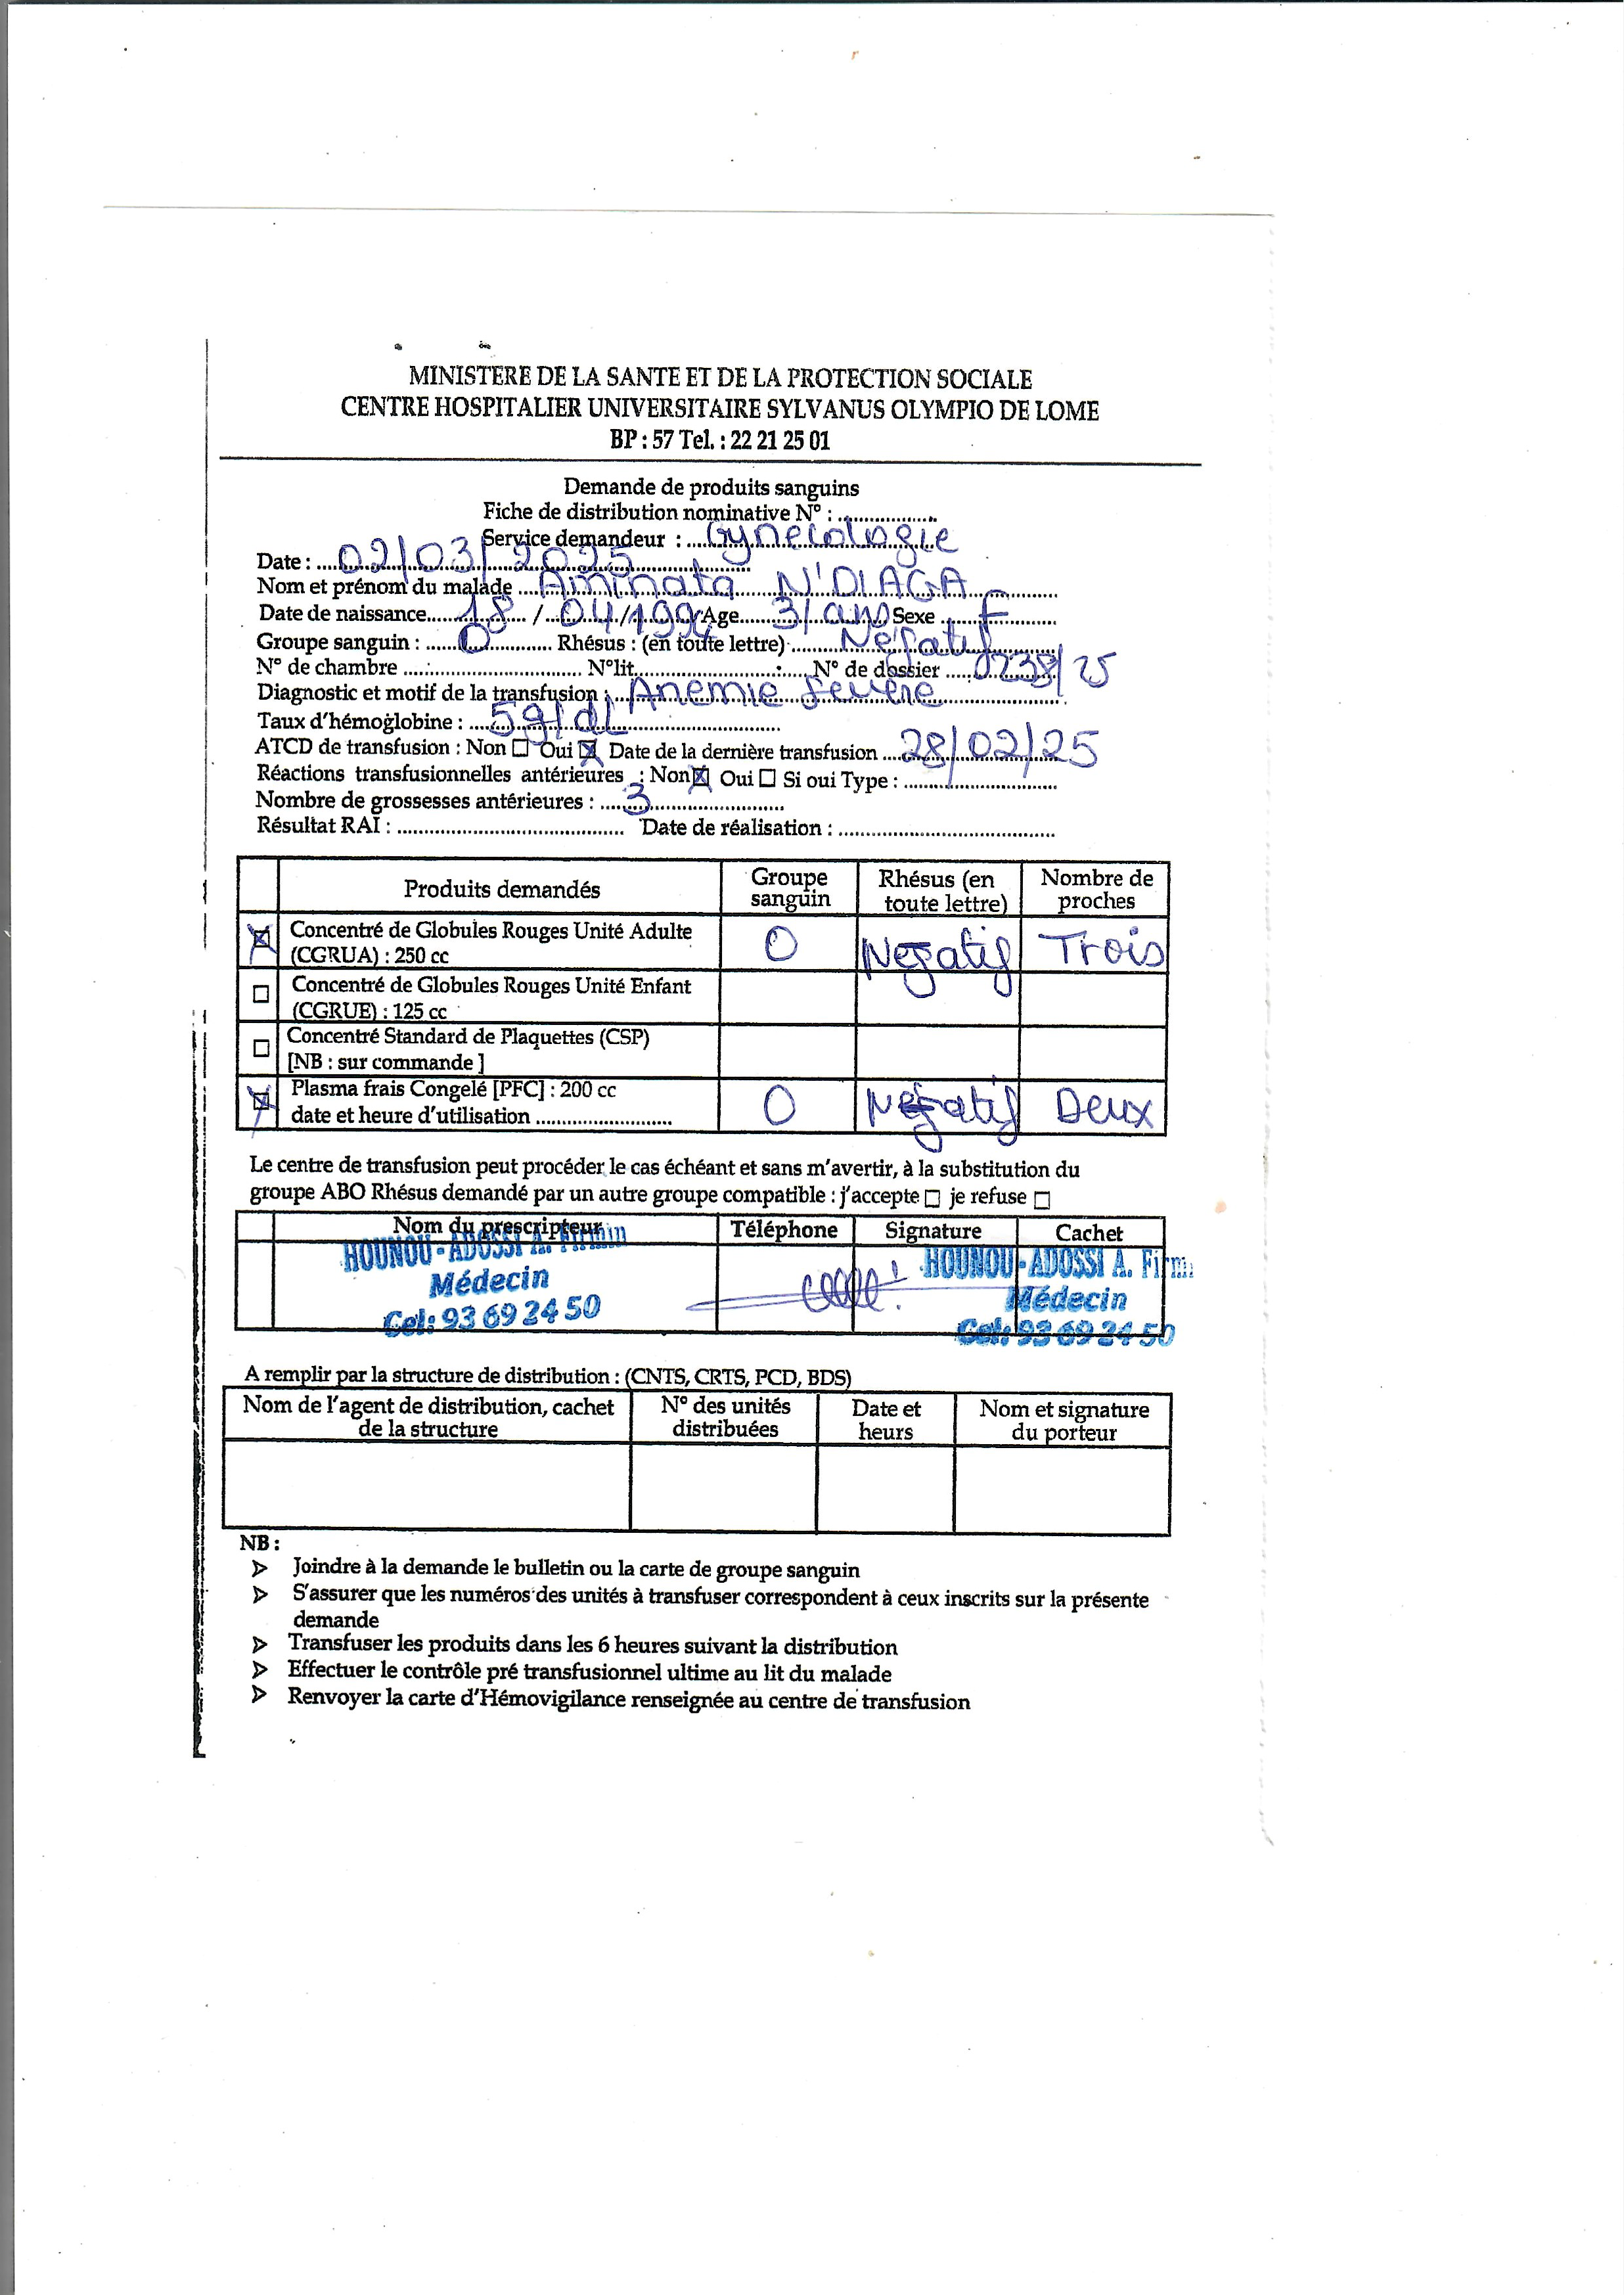 MINISTERE DE LA SANTE ET DE LA PROTECTION SOCIALE
CENTRE HOSPITALIER UNIVERSITAIRE SYLVANUS OLYMPIO DE LOME
BP : 57 Tel. : 22 21 25 01
Demande de produits sanguins
Fiche de distribution nominative N° : ................
Service demandeur : Gynecologie
Date : 02/03/2025
Nom et prénom du malade Aminata N'DIAGA
Date de naissance 18 / 04 / 1994 Age 31 ans Sexe F
Groupe sanguin : O Rhésus : (en toute lettre) Négatif
N° de chambre ........ N°lit ........ N° de dossier 0238/25
Diagnostic et motif de la transfusion : Anemie severe
Taux d'hémoglobine : 5g/dl
ATCD de transfusion : Non ☐ Oui ☒ Date de la dernière transfusion 28/02/25
Réactions transfusionnelles antérieures : Non ☒ Oui ☐ Si oui Type : ........
Nombre de grossesses antérieures : 3
Résultat RAI : ........ Date de réalisation : ........
Produits demandés Groupe sanguin Rhésus (en toute lettre) Nombre de proches
☒ Concentré de Globules Rouges Unité Adulte (CGRUA) : 250 cc O Negatif Trois
☐ Concentré de Globules Rouges Unité Enfant (CGRUE) : 125 cc
☐ Concentré Standard de Plaquettes (CSP) [NB : sur commande ]
☒ Plasma frais Congelé [PFC] : 200 cc date et heure d'utilisation ........ O Négatif Deux
Le centre de transfusion peut procéder le cas échéant et sans m'avertir, à la substitution du
groupe ABO Rhésus demandé par un autre groupe compatible : j'accepte ☐ je refuse ☐
Nom du prescripteur Téléphone Signature Cachet
HOUNOU - ADOSSI A. Firmin HOUNOU - ADOSSI A. Firmi
Médecin Médecin
Cel: 93 69 24 50 Cel: 93 69 24 50
A remplir par la structure de distribution : (CNTS, CRTS, PCD, BDS)
Nom de l'agent de distribution, cachet de la structure N° des unités distribuées Date et heurs Nom et signature du porteur
NB :
Joindre à la demande le bulletin ou la carte de groupe sanguin
S'assurer que les numéros des unités à transfuser correspondent à ceux inscrits sur la présente
demande
Transfuser les produits dans les 6 heures suivant la distribution
Effectuer le contrôle pré transfusionnel ultime au lit du malade
Renvoyer la carte d'Hémovigilance renseignée au centre de transfusion